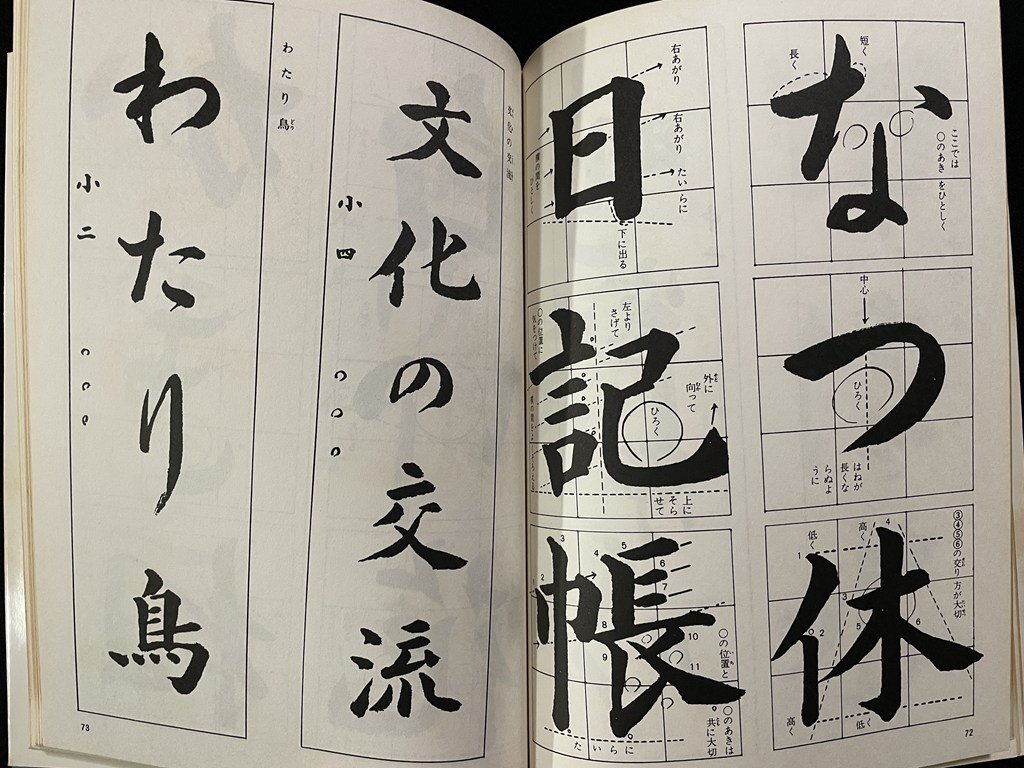 なつ休
短く
長く
ここでは
〇のあき をひとしく
中心
ひろく
はねが
長くな
らぬよ
うに
③④⑤⑥の交り方が大切
低く
高く
1
2
3
4
5
6
高く
低く
72
日記帳
右あがり
右あがり
たいらに
横の間を
ひとしく
下に出る
左より
さげて
〇の位置に
気をつけて
外に
向って
ひろく
上に
そら
せて
1
2
3
4
5
6
7
8
9
10
11
〇の位置と
〇のあきは
共に大切
たいらに
文化の交流
文化の交流
小四
〇〇〇
わたり鳥
わたり鳥
小二
〇〇〇
73